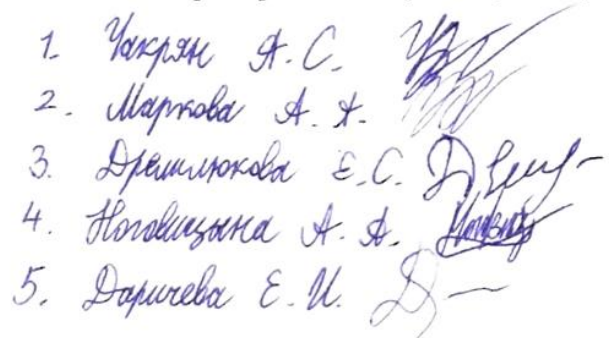 1. Чакрян А. С.
2. Маркова А. А.
3. Дремлюкова Е. С.
4. Ноговицына А. А.
5. Даричева Е. И.